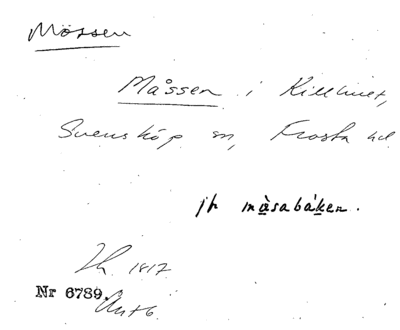 Mössen
Måssen i Killhult,
Svensköp sn, Frosta hd
jfr màsabáken.
1817
Nr 6789.